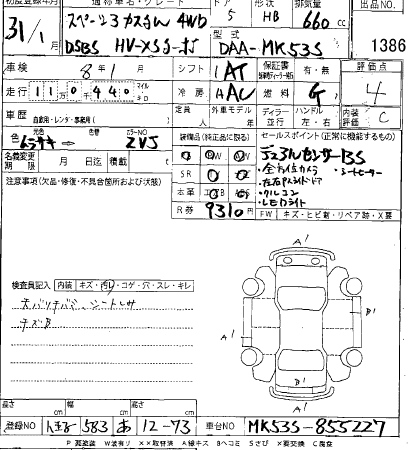 初度登録年月 通称車名・グレード ドア 形状 排気量 出品NO.
31/1 スペーシアカスタム 4WD 5 HB 660 cc
DSBS HV-XSターボ 型式 DAA-MK53S 1386
車検 8年1月 シフト AT 有・無 評価点
走行 110440 マイル 冷房 AAC ハンドル 左・右 4
車歴 自家用・レンタ・事業用( ) 定員 人 外車モデル 年 ディーラー 並行 内装評価 C
色 元色 ムラサキ 色替 カラーNO ZVJ 装備品(純正品に限る) セールスポイント(正常に機能するもの)
名義変更期限 月 日迄 積載 t SR 革 デュアルセンサーBS
・全方位カメラ ・シートヒーター
・左右パワースライドドア
・クルコン
・LEDライト
注意事項(欠品・修復・不具合箇所および状態)
R券 9310円 FW キズ・ヒビ割・リペア跡・X要
検査員記入 内装 キズ・汚れ・コゲ・穴・スレ・キレ
キズ・B
A'
A' B' A'
B'
A'
長さ cm 幅 cm 高さ cm
登録NO 583 あ 12-73 車台NO MK53S-855227
P 要塗装 W波有リ ××取替済 A線キズ Bヘコミ Sさび ×要交換 C腐食